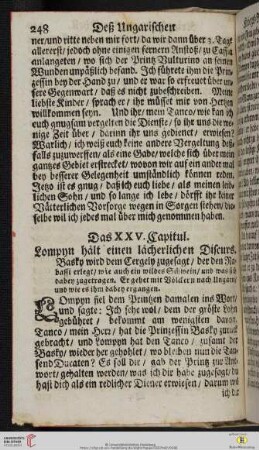 248 Deß Ungarischen
ner/und ritte neben mir fort/da wir dann über 3. Tage
allererst/jedoch ohne einigen fernern Anstoß/zu Cassa
anlangeten/wo sich der Printz Vulturins an seinen
Wunden unpäßlich befand. Ich führete ihm die Prin-
zessin bey der Hand zu/und er war so erfreuet über un-
sere Gegenwart/daß es nicht zubeschreiben. Meine
liebste Kinder/sprach er/ihr müsset mir von Hertzen
willkommen seyn. Und ihr/mein Tanco/wie kan ich
euch gnugsam vergelten die Dienste/so ihr uns die we-
nige Zeit über/darinn ihr uns gedienet/erwiesen?
Warlich/ich weiß euch keine andere Vergeltung deß-
falls zuzuwerffen/als eine Gabe/welche sich über mein
gantzes Gebiet erstrecket/wovon wir auf ein ander mal
bey besserer Gelegenheit umständlich können reden.
Jetzo ist es gnug/daß ich euch liebe/als meinen leib-
lichen Sohn/und so lange ich lebe/dörfft ihr keiner
Vätterlichen Vorsorge wegen in Sorgen stehen/die-
selbe wil ich jedes mal über mich genommen haben.
Das XXV. Capitul.
Lompyn hält einen lächerlichen Discurs.
Basky wird dem Cergely zugesagt/der den Ra-
bassi erlegt/wie auch ein wildes Schwein/und was sich
dabey zugetragen. Er gehet mit Völckern nach Ungarn/
und wie es ihm dabey ergangen.
Lompyn fiel dem Printzen damalen ins Wort/
und sagte: Ich sehe wol/dem der gröste Lohn
gebühret/bekommt am wenigsten davon.
Tanco/mein Herr/hat die Prinzessin Basky zurück
gebracht/und Lompyn hat den Tanco/zusamt der
Basky/wieder her gehohlet/wo bleiben nun die Tau-
send Ducaten? Es soll dir/gab der Printz zur Ant-
wort/gehalten werden/was ich dir habe zugesagt/du
hast dich als ein redlicher Diener erwiesen/darum wil
ich dich